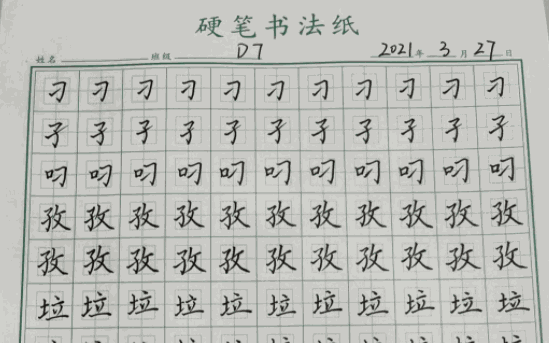 硬笔书法纸
姓名 班级 D7 2021年 3月 27日
刁 刁 刁 刁 刁 刁 刁 刁 刁 刁 刁
孑 孑 孑 孑 孑 孑 孑 孑 孑 孑 孑
叼 叼 叼 叼 叼 叼 叼 叼 叼 叼 叼
孜 孜 孜 孜 孜 孜 孜 孜 孜 孜 孜
孜 孜 孜 孜 孜 孜 孜 孜 孜 孜 孜
垃 垃 垃 垃 垃 垃 垃 垃 垃 垃 垃